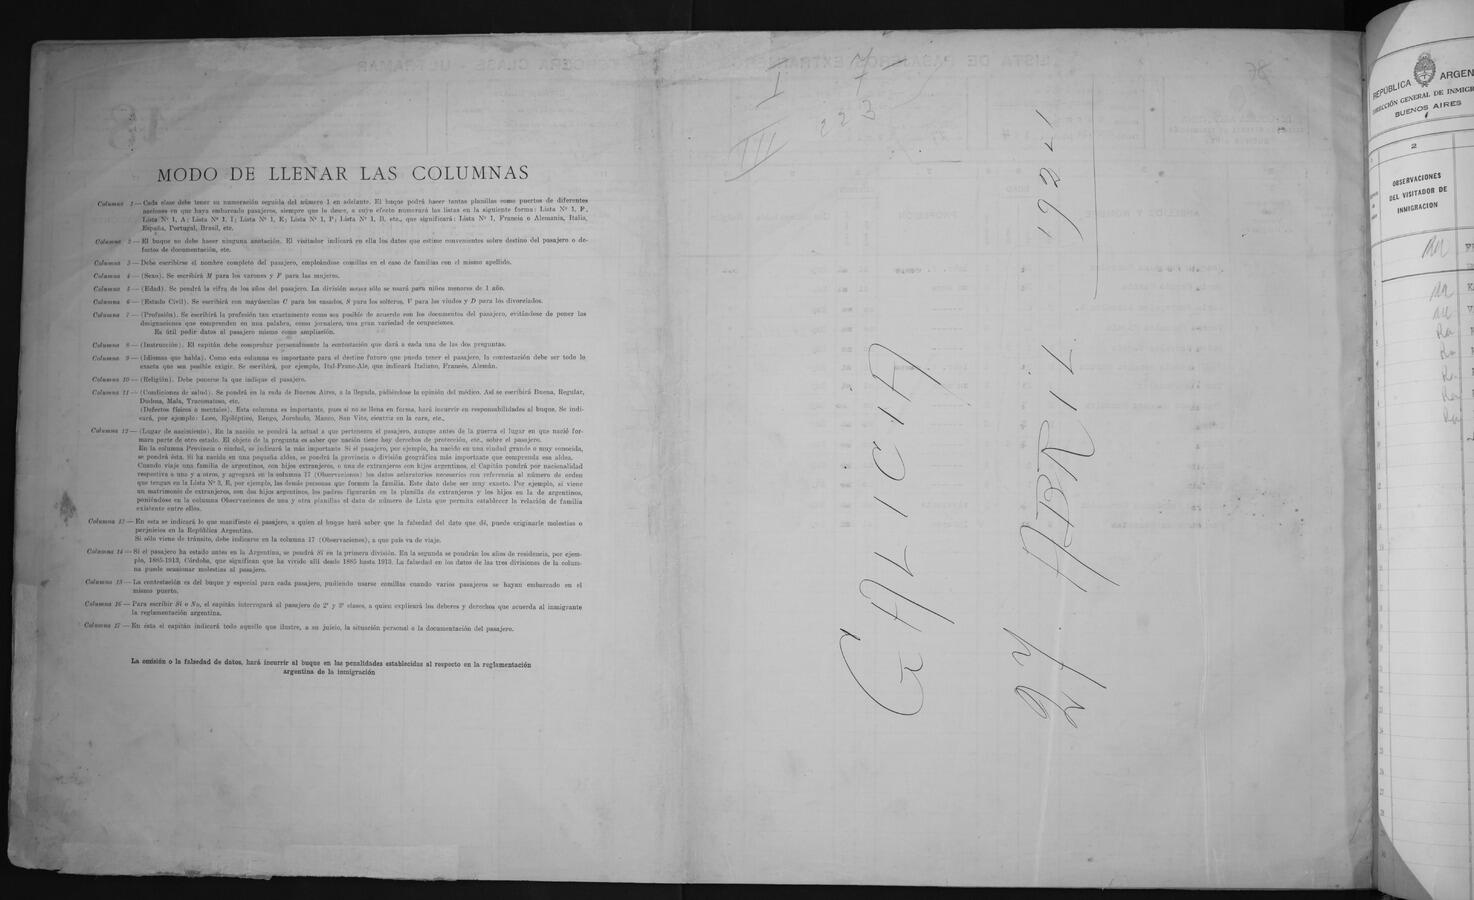 MODO DE LLENAR LAS COLUMNAS
Columna 1 — Cada clase debe tener su numeración seguida del número 1 en adelante. El buque podrá hacer tantas planillas como puertos de diferentes
naciones en que haya embarcado pasajeros, siempre que lo desee, a cuyo efecto numerará las listas en la siguiente forma: Lista Nº 1, F,
Lista Nº 1, A; Lista Nº 1, I; Lista Nº 1, E; Lista Nº 1, P; Lista Nº 1, B, etc., que significará: Lista Nº 1, Francia o Alemania, Italia,
España, Portugal, Brasil, etc.
Columna 2 — El buque no debe hacer ninguna anotación. El visitador indicará en ella los datos que estime convenientes sobre destino del pasajero o de-
fectos de documentación, etc.
Columna 3 — Debe escribirse el nombre completo del pasajero, empleándose comillas en el caso de familias con el mismo apellido.
Columna 4 — (Sexo). Se escribirá M para los varones y F para las mujeres.
Columna 5 — (Edad). Se pondrá la cifra de los años del pasajero. La división meses sólo se usará para niños menores de 1 año.
Columna 6 — (Estado Civil). Se escribirá con mayúsculas C para los casados, S para los solteros, V para los viudos y D para los divorciados.
Columna 7 — (Profesión). Se escribirá la profesión tan exactamente como sea posible de acuerdo con los documentos del pasajero, evitándose de poner las
designaciones que comprenden en una palabra, como jornalero, una gran variedad de ocupaciones.
Es útil pedir datos al pasajero mismo como ampliación.
Columna 8 — (Instrucción). El capitán debe comprobar personalmente la contestación que dará a cada una de las dos preguntas.
Columna 9 — (Idiomas que habla). Como esta columna es importante para el destino futuro que pueda tener el pasajero, la contestación debe ser todo lo
exacta que sea posible exigir. Se escribirá, por ejemplo, Ital-Franc-Ale, que indicará Italiano, Francés, Alemán.
Columna 10 — (Religión). Debe ponerse la que indique el pasajero.
Columna 11 — (Condiciones de salud). Se pondrá en la rada de Buenos Aires, a la llegada, pidiéndose la opinión del médico. Así se escribirá Buena, Regular,
Dudosa, Mala, Tracomatoso, etc.
(Defectos físicos o mentales). Esta columna es importante, pues si no se llena en forma, hará incurrir en responsabilidades al buque. Se indi-
cará, por ejemplo: Loco, Epiléptico, Rengo, Jorobado, Manco, San Vito, cicatriz en la cara, etc.,
Columna 12 — (Lugar de nacimiento). En la nación se pondrá la actual a que pertenezca el pasajero, aunque antes de la guerra el lugar en que nació for-
mara parte de otro estado. El objeto de la pregunta es saber que nación tiene hoy derechos de protección, etc., sobre el pasajero.
En la columna Provincia o ciudad, se indicará la más importante Si el pasajero, por ejemplo, ha nacido en una ciudad grande o muy conocida,
se pondrá ésta. Si ha nacido en una pequeña aldea, se pondrá la provincia o división geográfica más importante que comprenda esa aldea.
Cuando viaje una familia de argentinos, con hijos extranjeros, o una de extranjeros con hijos argentinos, el Capitán pondrá por nacionalidad
respectiva a uno y a otros, y agregará en la columna 17 (Observaciones) los datos aclaratorios necesarios con referencia al número de orden
que tengan en la Lista Nº 3, E, por ejemplo, las demás personas que formen la familia. Este dato debe ser muy exacto. Por ejemplo, si viene
un matrimonio de extranjeros, con dos hijos argentinos, los padres figurarán en la planilla de extranjeros y los hijos en la de argentinos,
poniéndose en la columna Observaciones de una y otra planillas el dato de número de Lista que permita establecer la relación de familia
existente entre ellos.
Columna 13 — En esta se indicará lo que manifieste el pasajero, a quien el buque hará saber que la falsedad del dato que dé, puede originarle molestias o
perjuicios en la República Argentina.
Si sólo viene de tránsito, debe indicarse en la columna 17 (Observaciones), a que país va de viaje.
Columna 14 — Si el pasajero ha estado antes en la Argentina, se pondrá Sí en la primera división. En la segunda se pondrán los años de residencia, por ejem-
plo, 1885-1913, Córdoba, que significan que ha vivido allí desde 1885 hasta 1913. La falsedad en los datos de las tres divisiones de la colum-
na puede ocasionar molestias al pasajero.
Columna 15 — La contestación es del buque y especial para cada pasajero, pudiendo usarse comillas cuando varios pasajeros se hayan embarcado en el
mismo puerto.
Columna 16 — Para escribir Sí o No, el capitán interrogará al pasajero de 2ª y 3ª clases, a quien explicará los deberes y derechos que acuerda al inmigrante
la reglamentación argentina.
Columna 17 — En ésta el capitán indicará todo aquello que ilustre, a su juicio, la situación personal o la documentación del pasajero.
La omisión o la falsedad de datos, hará incurrir al buque en las penalidades establecidas al respecto en la reglamentación
argentina de la inmigración
I 7
III 223
GALICIA
27 ABRIL 1921
REPÚBLICA ARGEN
DIRECCIÓN GENERAL DE INMIGR
BUENOS AIRES
2
OBSERVACIONES
DEL VISITADOR DE
INMIGRACION